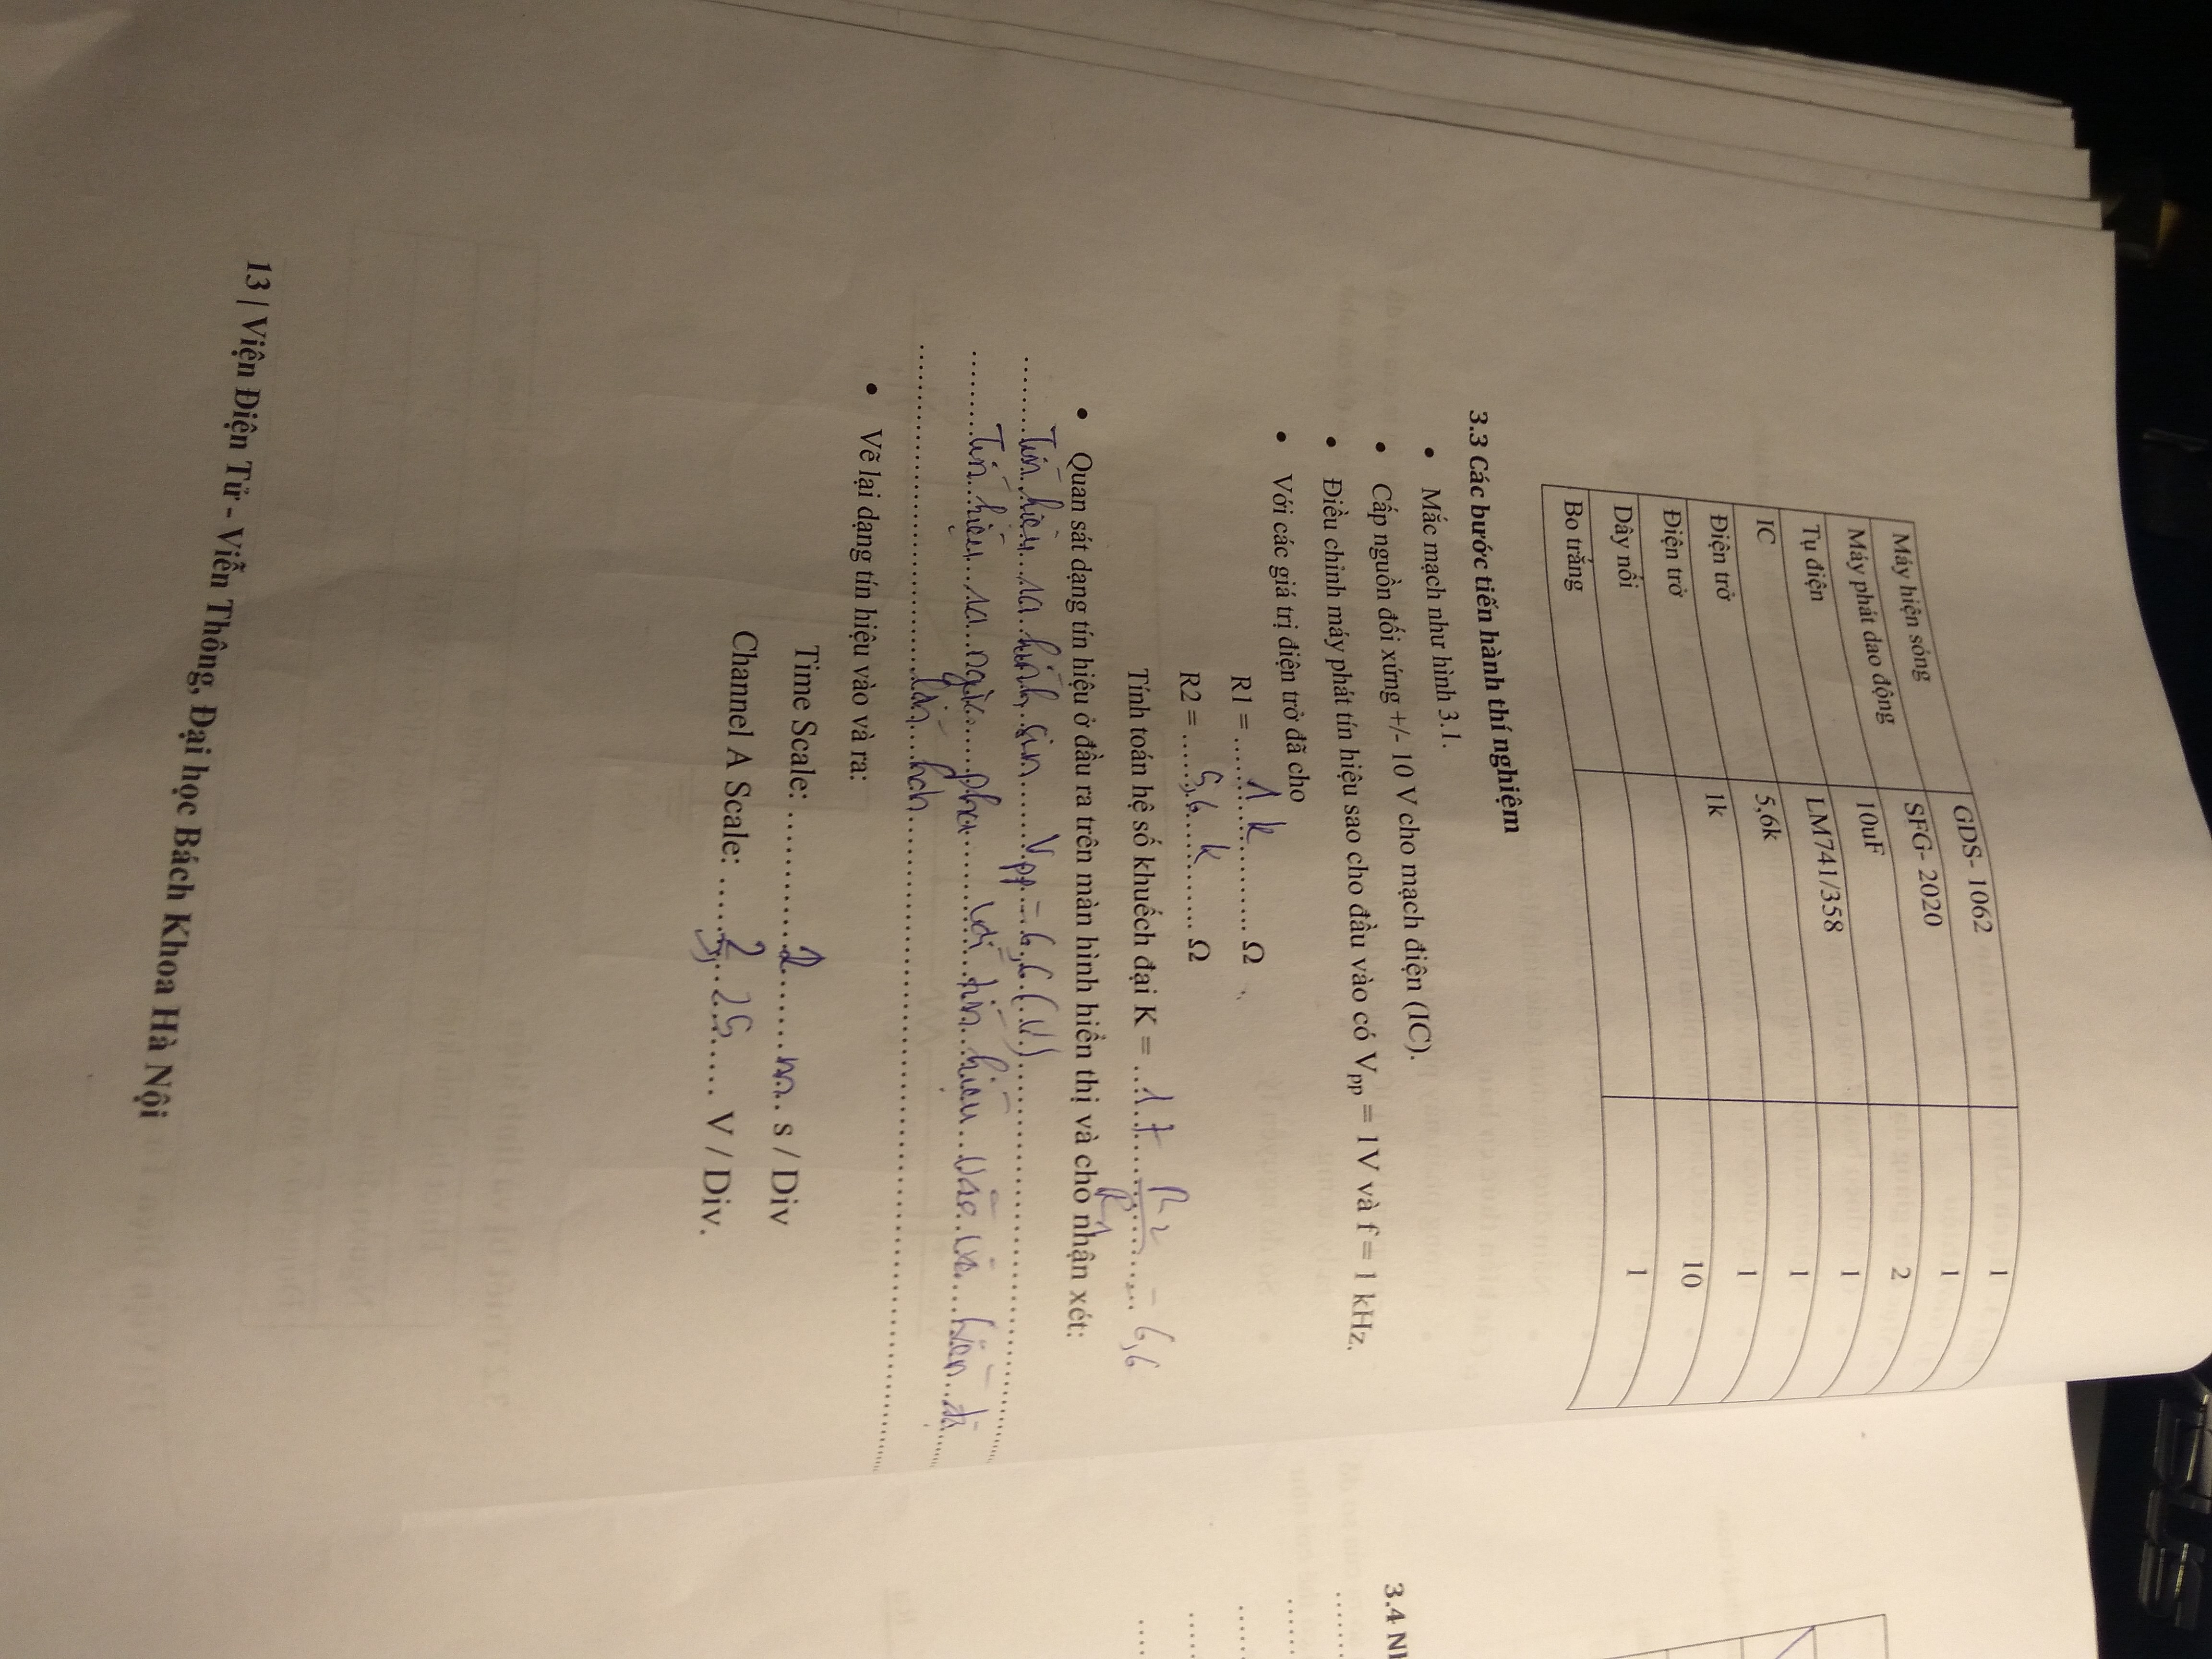 ASUS
Máy hiện sóng GDS- 1062 1
Máy phát dao động SFG- 2020 1
Tụ điện 10uF 2
IC LM741/358 1
Điện trở 5,6k 1
Điện trở 1k 1
Dây nối 10
Bo trắng 1
3.3 Các bước tiến hành thí nghiệm
• Mắc mạch như hình 3.1.
• Cấp nguồn đối xứng +/- 10 V cho mạch điện (IC).
• Điều chỉnh máy phát tín hiệu sao cho đầu vào có Vpp = 1V và f = 1 kHz.
• Với các giá trị điện trở đã cho
R1 = 1 k Ω
R2 = 5,6 k Ω
Tính toán hệ số khuếch đại K = 1 + R2/R1 = 6,6
• Quan sát dạng tín hiệu ở đầu ra trên màn hình hiển thị và cho nhận xét:
Tín hiệu ra hình sin Vpp = 6,6 (V)
Tín hiệu ra ngược pha với tín hiệu vào và biên độ
lớn hơn
• Vẽ lại dạng tín hiệu vào và ra:
Time Scale: m s / Div
Channel A Scale: V / Div.
3.4 Nh
13 | Viện Điện Tử - Viễn Thông, Đại học Bách Khoa Hà Nội